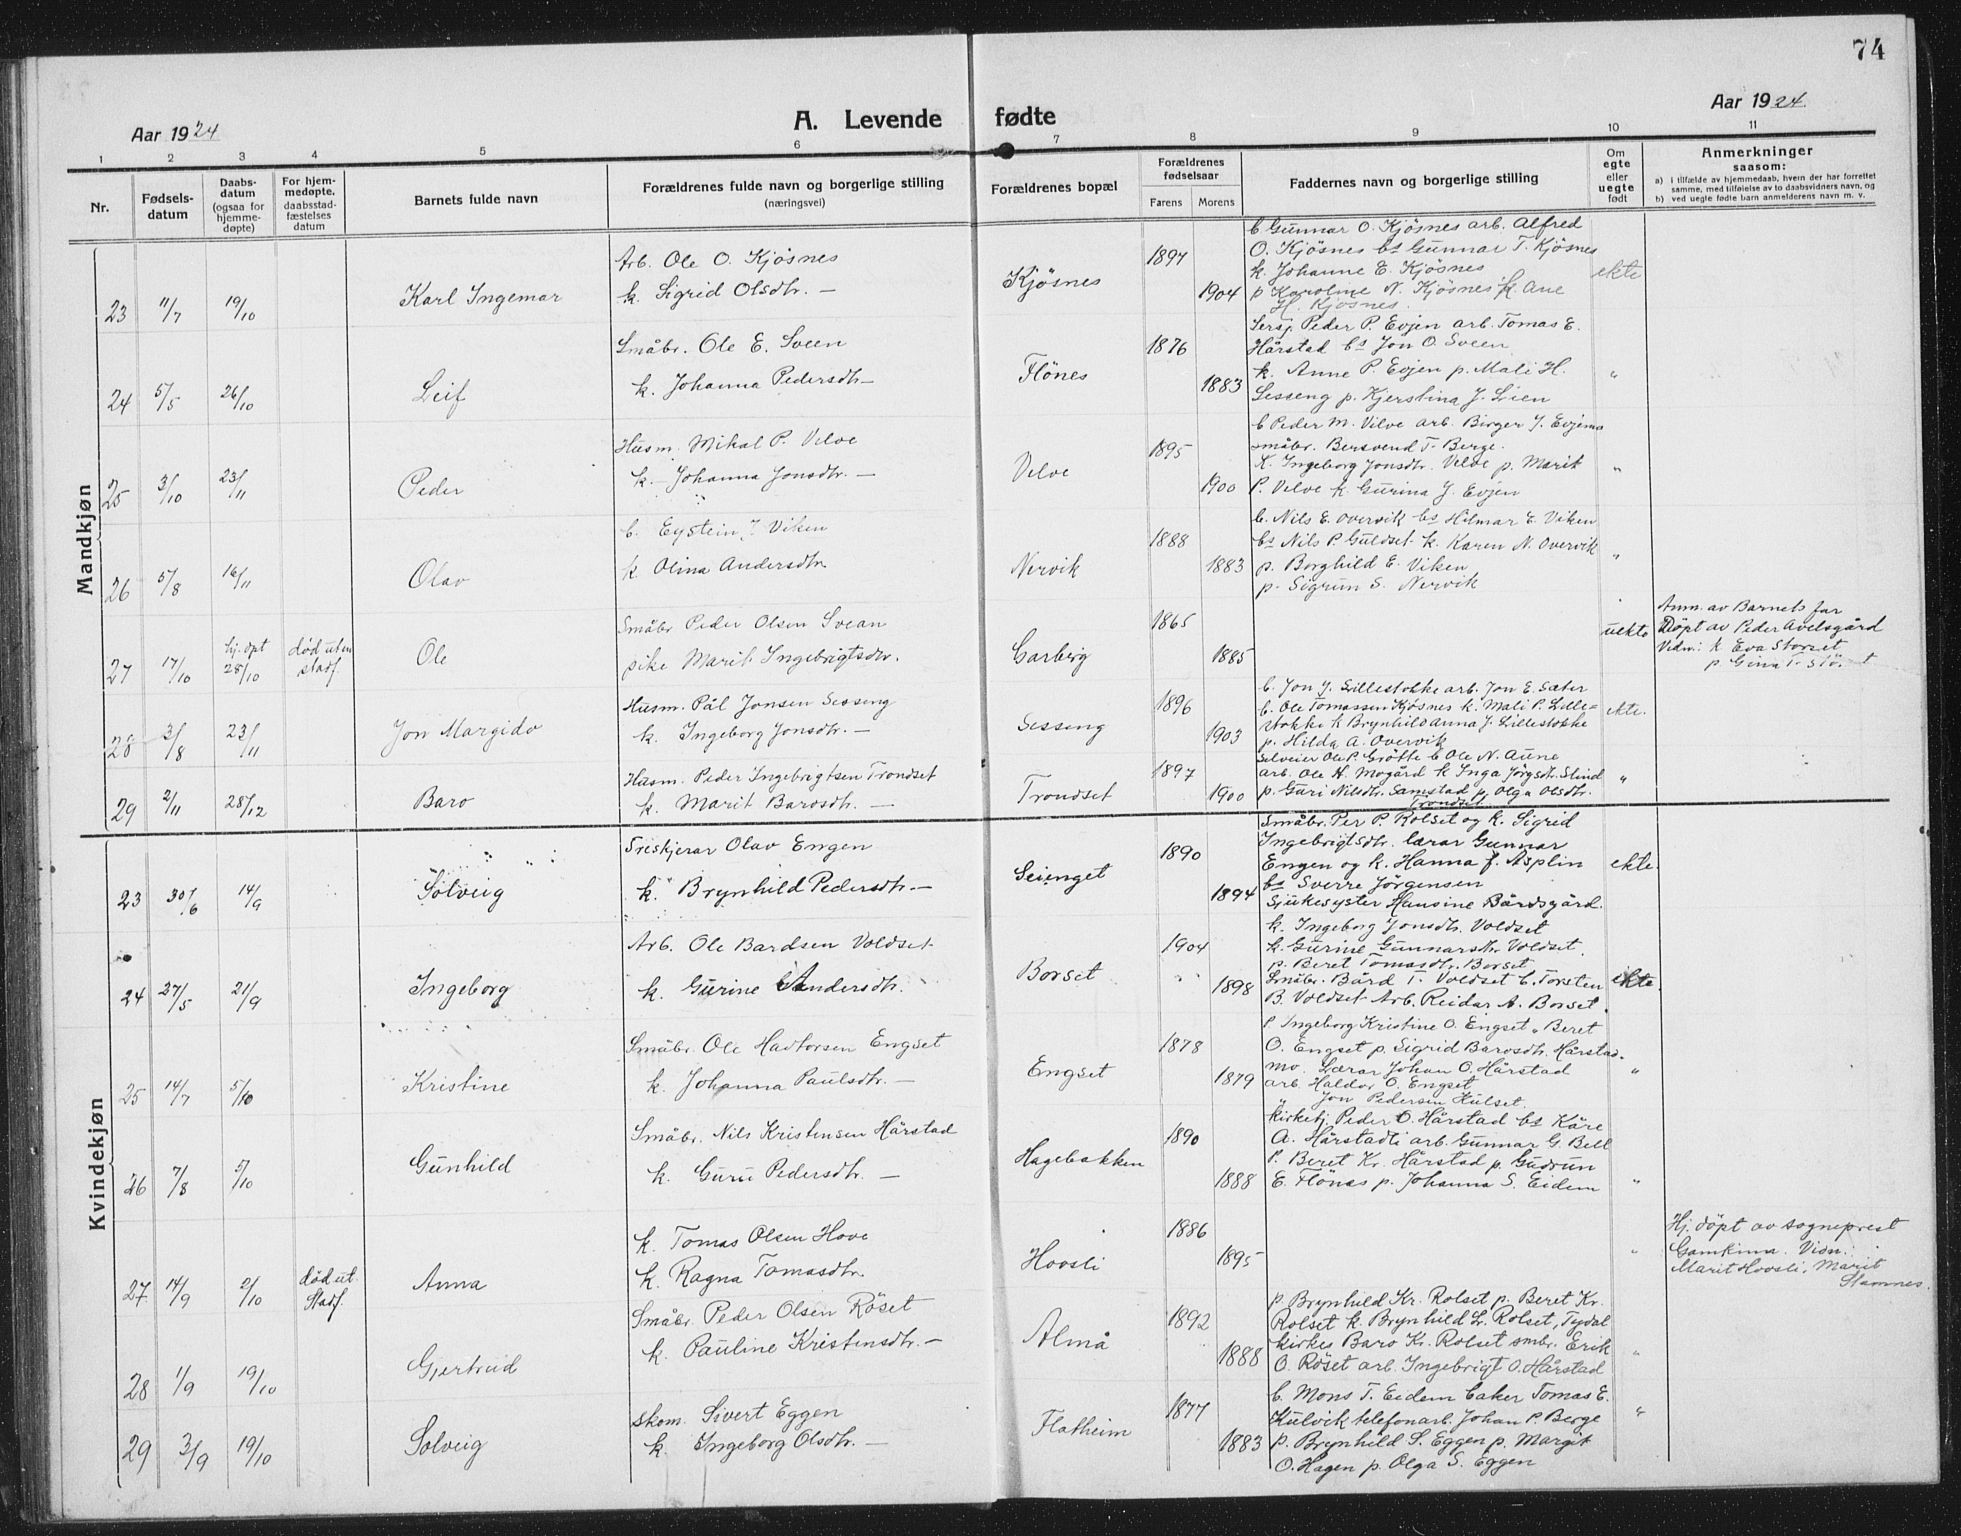 74
Aar 1924
A. Levende fødte
Aar 1924.
1 2 3 4 5 6 7 8 9 10 11
Nr.
Fødsels-
datum
Daabs-
datum
(ogsaa for
hjemme-
døpte)
For hjem-
medøpte,
daabsstad-
fæstelses
datum
Barnets fulde navn
Forældrenes fulde navn og borgerlige stilling
(næringsvei)
Forældrenes bopæl
Forældrenes
fødselsaar
Farens Morens
Faddernes navn og borgerlige stilling
Om
egte
eller
uegte
født
Anmerkninger
saasom:
a) i tilfælde av hjemmedaab, hvem der har forrettet
samme, med tilføielse av to daabsvidners navn, og
b) ved uegte fødte barn anmelderens navn m. v.
Mandkjøn
23 11/7 19/10 Karl Ingemar
Arb. Ole O. Kjösnes
k. Sigrid Olsdtr. —
Kjösnes 1897 1904
b Gunnar O. Kjösnes arb. Alfred
O. Kjösnes bs Gunnar T. Kjösnes
k. Johanne E. Kjösnes
p Karoline N. Kjösnes k. Ane
H. Kjösnes.
ekte
24 5/5 26/10 Leif
Småbr. Ole E. Sveen
k. Johanna Pedersdtr —
Flönes 1876 1883
Sersj. Peder P. Evjen arb. Tomas E.
Hårstad bs Jon O. Sveen
k. Anne P. Evjen p. Mali H.
Sesseng p. Kjerstina J. Lien
"
25 3/10 23/11 Peder
Husm. Mikal P. Velve
k. — Johanna Jonsdtr. —
Velve 1895 1900
b Peder M. Vilve arb. Birger J. Evjemo
småbr. Bersvend T. Berge.
K. Ingeborg Jonsdtr. Velve p. Marit
P. Velve k Gurina J. Evjen
"
26 5/8 16/11 Olav
b. Eystein J. Viken
k Olina Andersdtr.
Nervik 1888 1883
b. Nils E. Overvik bs Hilmar E. Viken
bs Nils P. Guldset k. Karen N. Overvik
p. Borghild E. Viken
p. Sigrun S. Nervik
"
27 17/10 hj. dpt 28/10 död uten stadf. Ole
Småbr Peder Olsen Svean
pike Marit Ingebrigtsdtr.
Garberg 1865 1885
uekte
Anm. av Barnets far
Döpt av Peder Avelsgård
Vidn: k Eva Storset
28 3/8 23/11 Jon Margido
Husm. Pål Jonsen Sesseng
k. Ingeborg Jonsdtr. —
Sesseng 1896 1903
b. Jon J. Lillestokke arb. Jon E. Sæter
b. Ole Tomassen Kjösnes k. Mali P. Lille=
stokke k Brynhildanna J. Lillestokke
p. Hilda A. Overvik
ekte.
29 2/11 28/12 Baro
Husm. Peder Ingebrigtsen Trondset
k. Marit Barosdtr. —
Trondset 1897 1900
Selveier Ole P. Grötte b Ole N. Aune
arb. Ole H. Mogård k Inga Jörgsdtr. Stind
p. Guri Nilsdtr. Samstad p Olga Olsdtr.
Trondset
"
Kvindekjøn
23 30/6 14/9 Solveig
Olav Engen
k. Brynhild Pedersdtr. —
1890 1894
Småbr. Per P. Rolset og k. Sigrid
Ingebrigtsdtr. lærar Gunnar
Engen og k. Hanna f. Asplin
bs Sverre Jörgensen
Sjukesyster Hansine Bårdsgård.
ekte.
24 27/5 21/9 Ingeborg
Arb. Ole Bardsen Voldset
k. Gurine Andersdtr.
Borset 1904 1898
k. Ingeborg Jonsdtr. Voldset
k. Gurine Gunnarsdtr Voldset
p. Beret Tomasdtr. Borset
Småbr. Bård T. Voldset b. Torsten
B. Voldset Arb. Reidar A. Borset.
ekte.
25 14/7 5/10 Kristine
Småbr. Ole Hadtorsen Engset
k. Johanna Paulsdtr. —
Engset 1878 1879
P. Ingeborg Kristine O. Engset " Beret
O. Engset p. Sigrid Barosdtr. Hårstad.
mo. Lærar Johan O. Hårstad
arb. Haldor O. Engset
" Jon Pedersen Hulset.
"
26 7/8 5/10 Gunhild
Småbr. Nils Kristensen Hårstad
k. Guru Pedersdtr. —
Hagebakken 1890 1888
Kirketj. Peder O. Hårstad bs Kåre
A. Hårstadli arb. Gunnar G. Bell
P. Beret Kr. Hårstad p. Gudrun
E. Flönes p. Johanna S. Eidem
"
27 14/9 2/10 död ut. Stadf. Anna
k. Tomas Olsen Hove
k. Ragna Tomasdtr.
Hovsli 1886 1895
"
Hj. döpt av sogneprest
Gamkinn. Vidn.:
Marit Hovsli, Marit
Stamnes.
28 1/9 19/10 Gjertrud
Småbr. Peder Olsen Röset
k. Pauline Kristensdtr. —
Almå 1892 1888
p. Brynhild Kr. Rolset p. Beret Kr.
Rolset k. Brynhild L. Rolset, Tydal
kirkes Baro Kr. Rolset smbr. Erik
O. Röset arb. Ingebrigt O. Hårstad
"
29 3/9 19/10 Solveig
Skom. Sivert Eggen
k. Ingeborg Olsdtr. —
Flatheim 1877 1883
b. Mons T. Eidem baker Tomas E.
Kulvik telefonarb. Johan P. Berge
p. Brynhild S. Eggen p. Margit
O. Hagen p. Olga S. Eggen
"